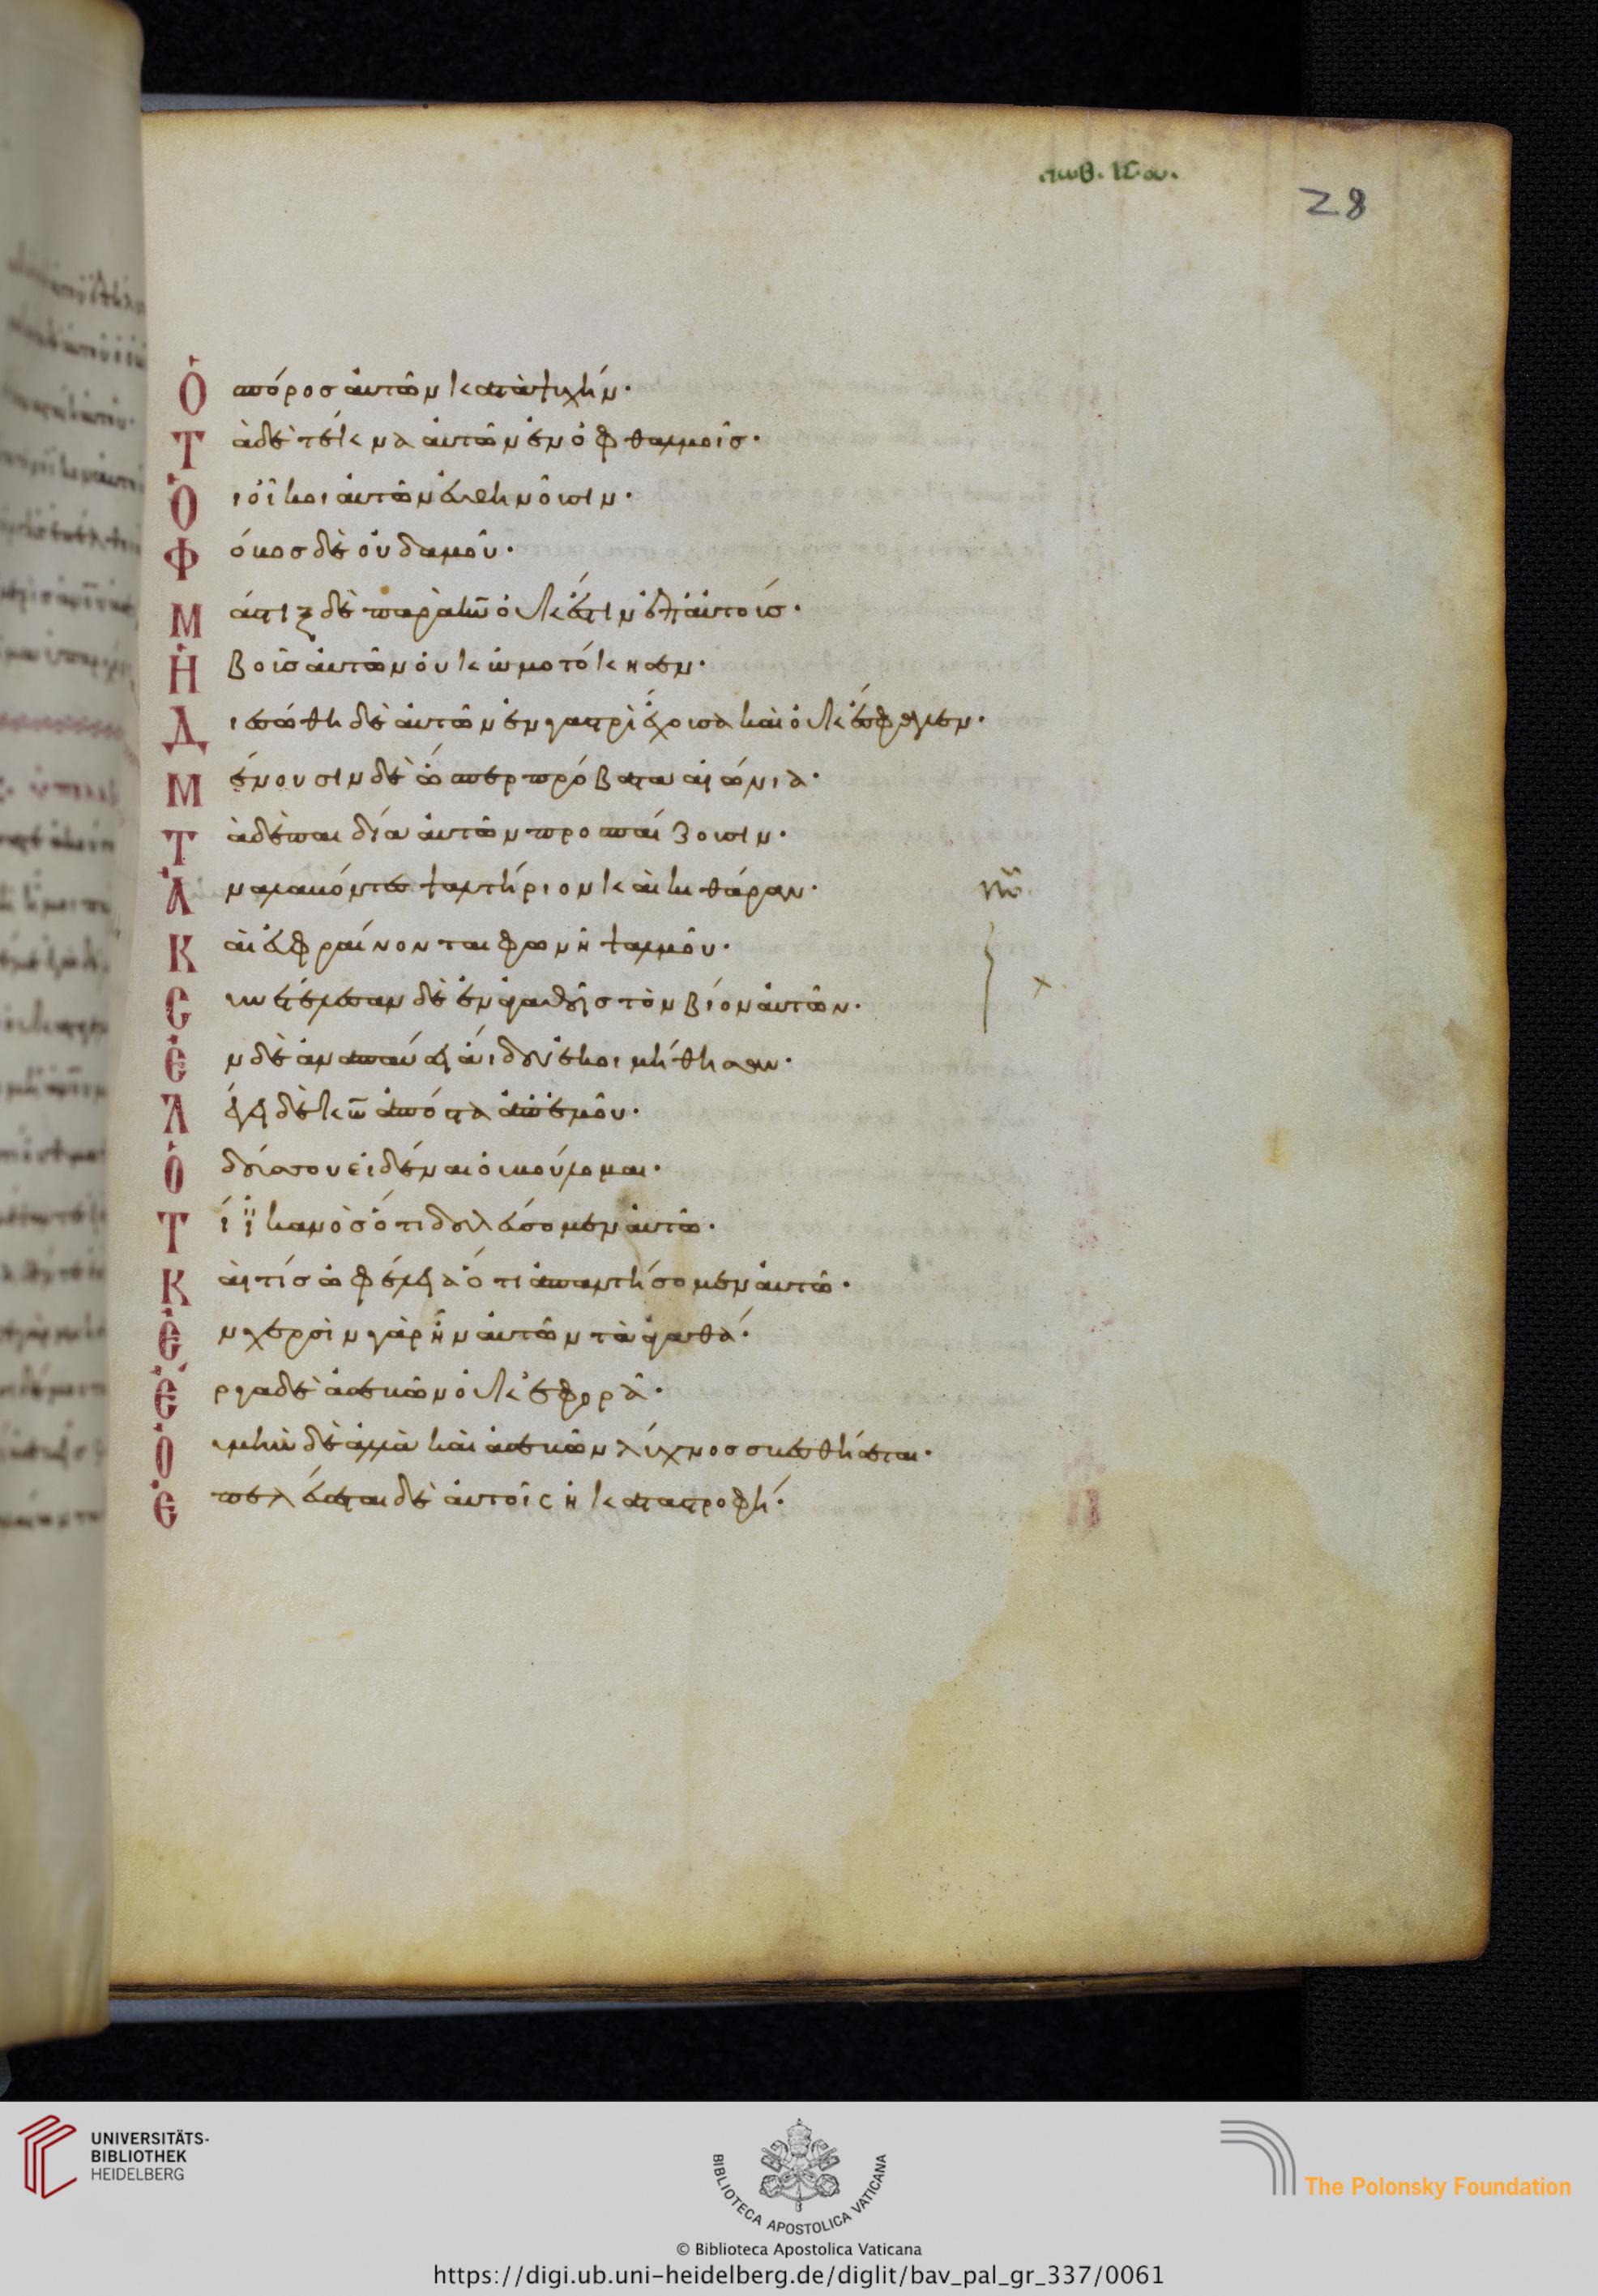 28
Ὁ σπόρος αὐτῶν κατὰ ψυχήν·
Τὰ δὲ τέκνα αὐτῶν ἐν ὀφθαλμοῖς·
Ὁι οἶκοι αὐτῶν εὐθηνοῦσιν·
Φόβος δὲ οὐδαμοῦ·
Μάστιξ δὲ παρὰ κ̅υ̅ οὐκ ἔστιν ἐπ' αὐτοῖς·
Ἡ βοῦς αὐτῶν οὐκ ὠμοτόκησεν·
Διεσώθη δὲ αὐτῶν ἐν γαστρὶ ἔχουσα καὶ οὐκ ἔσφαλεν·
Μένουσιν δὲ ὥσπερ πρόβατα αἰώνια·
Τὰ δὲ παιδία αὐτῶν προπαίζουσιν·
Ἀναλαβόντες ψαλτήριον καὶ κιθάραν·
Καὶ εὐφραίνονται φωνῇ ψαλμοῦ·
Συνετέλεσαν δὲ ἐν ἀγαθοῖς τὸν βίον αὐτῶν·
Ἐν δὲ ἀναπαύσει ἅιδου ἐκοιμήθησαν·
Λέγει δὲ κ̅ω̅ ἀπόστα ἀπ' ἐμοῦ·
Ὁδούς σου εἰδέναι οὐ βούλομαι·
Τί ἱκανὸς ὅτι δουλεύσομεν αὐτῷ·
Καὶ τίς ὠφέλεια ὅτι ἀπαντήσομεν αὐτῷ·
Ἐν χερσὶν γὰρ ἦν αὐτῶν τὰ ἀγαθά·
Ἔργα δὲ ἀσεβῶν οὐκ ἐφορᾷ·
Οὐ μὴν δὲ ἀλλὰ καὶ ἀσεβῶν λύχνος σβεσθήσεται·
Ἐπελεύσεται δὲ αὐτοῖς ἡ καταστροφή·
UNIVERSITÄTS-
BIBLIOTHEK
HEIDELBERG
BIBLIOTECA APOSTOLICA VATICANA
The Polonsky Foundation
© Biblioteca Apostolica Vaticana
https://digi.ub.uni-heidelberg.de/diglit/bav_pal_gr_337/0061